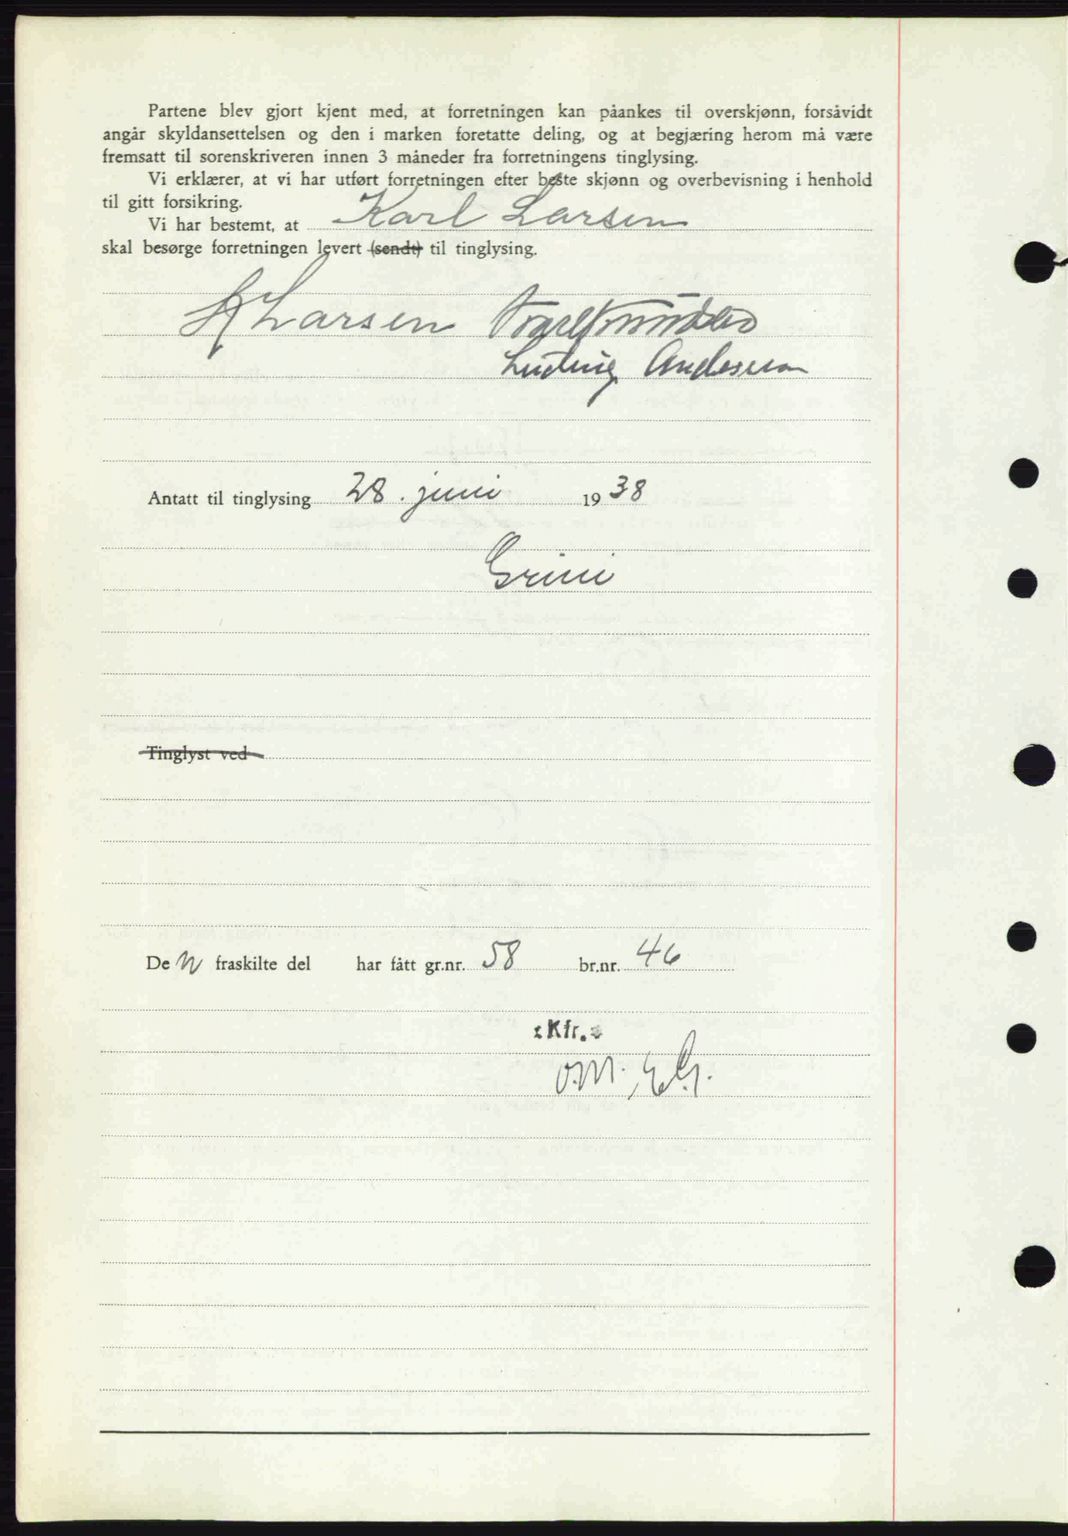 Partene blev gjort kjent med, at forretningen kan påankes til overskjønn, forsåvidt
angår skyldansettelsen og den i marken foretatte deling, og at begjæring herom må være
fremsatt til sorenskriveren innen 3 måneder fra forretningens tinglysing.
Vi erklærer, at vi har utført forretningen efter beste skjønn og overbevisning i henhold
til gitt forsikring.
Vi har bestemt, at Karl Larsen
skal besørge forretningen levert (sendt) til tinglysing.
K Larsen
Ludvig Andersen
Antatt til tinglysing 28. juni 1938
Grini
Tinglyst ved
De n fraskilte del har fått gr.nr. 58 br.nr. 46
: Kfr. :
O.M. EG.